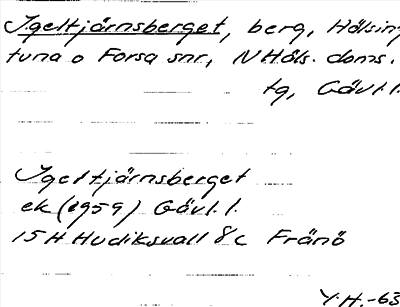 Igeltjärnsberget, berg, Hälsing
tuna o Forsa snr, N Häls. doms.
tg, Gävl. l.
Igeltjärnsberget
ek (1959) Gävl. l.
15H Hudiksvall 8c Fränö
Y.H.-63